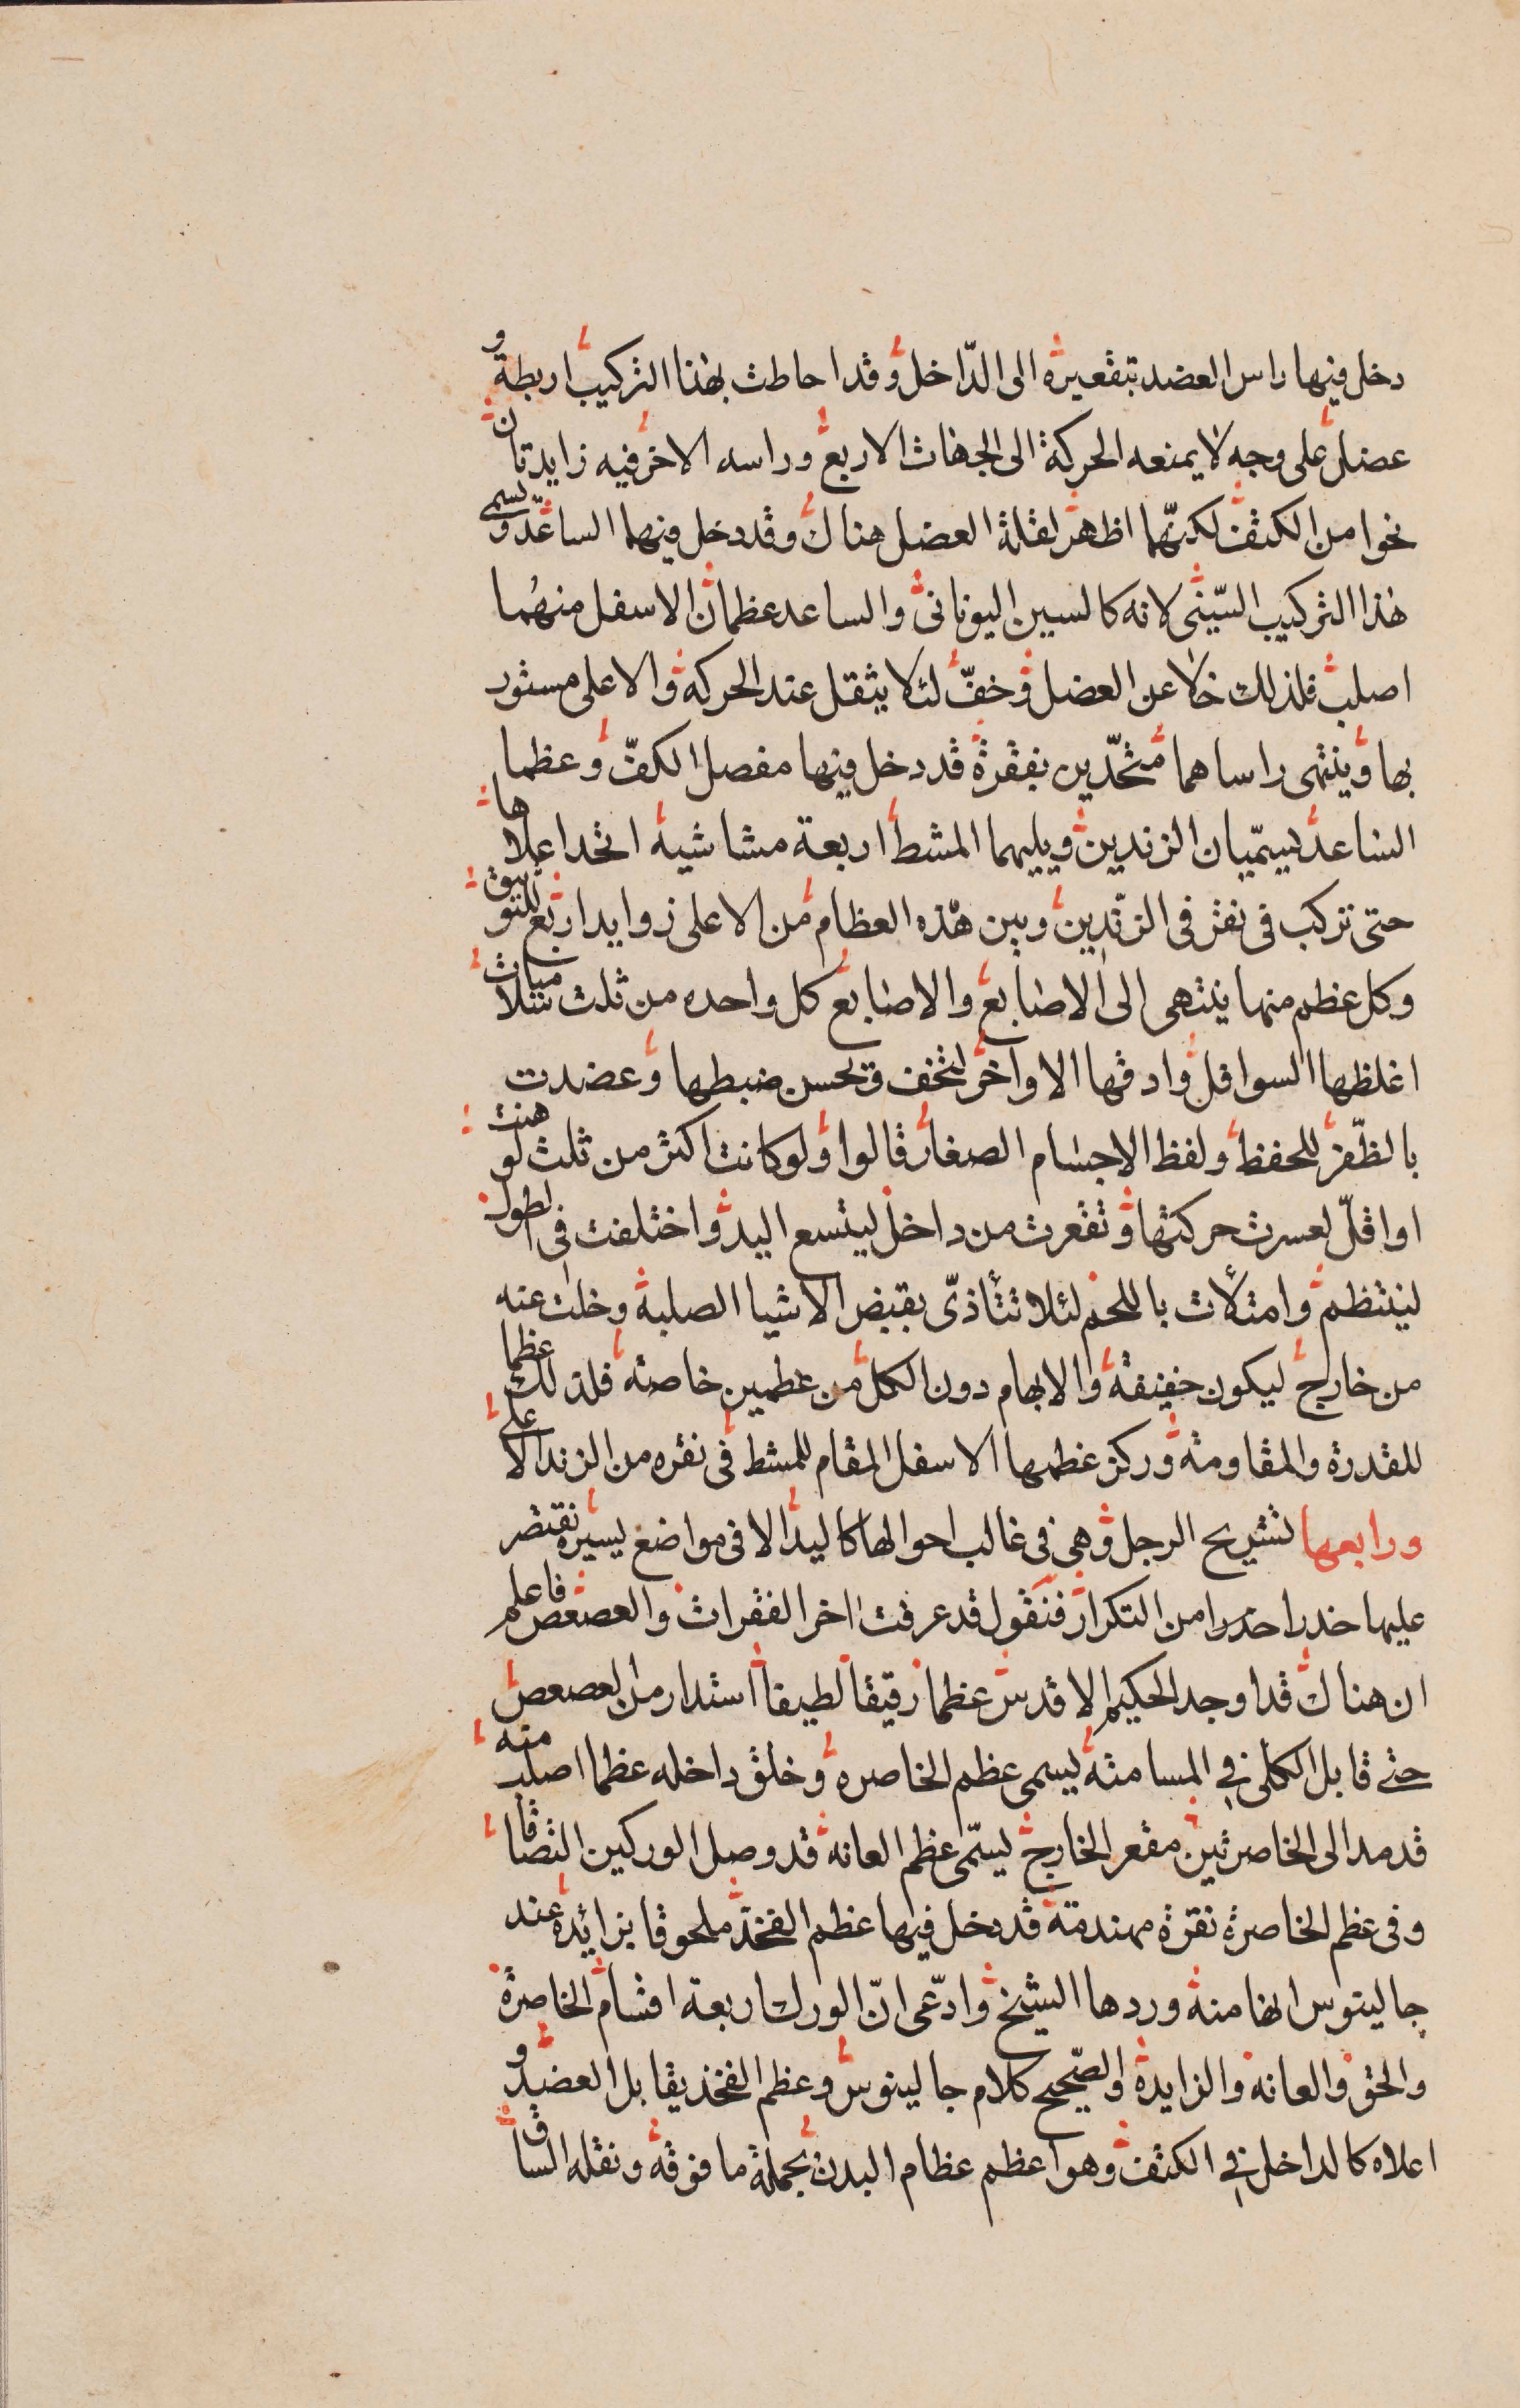 دخل فيها راس العضد بتقعيره الى الدّاخل وقد احاطت بهذا التركيب اربطة و
عضل على وجه لا يمنعه الحركة الى الجهات الاربع وراسه الاخر فيه زايدتان
نحوا من الكتف لكنّهما اظهر لقلة العضل هناك وقد دخل فيهما الساعد ويسمى
هذا التركيب السّينى لانه كالسين اليونانى والساعد عظمان الاسفل منهُما
اصلب فلذلك خلا عن العضل وخفّ لئلا يثقل عند الحركه والاعلى مستور
بها وينتهى راساهما متحدّين بنقرة قد دخل فيها مفصل الكفّ وعظما
الساعد يسمّيان الزندين ويليهما المشط اربعة مشاشيه اتحد اعلاها
حتى تركب فى نقر فى الزندين وبين هذه العظام من الاعلى زوايد اربع للتوثيق
وكل عظم منها ينتهى الى الاصابع والاصابع كل واحده من ثلث سلاميات
اغلظها السوافل وادقها الاواخر لتخف ويحسن ضبطها وعضدت
بالظّفر للحفظ ولقط الاجسام الصغار قالوا ولو كانت اكثر من ثلث لوهنت
او اقلّ لعسرت حركتها وتقعرت من داخل ليتسع اليد واختلفت فى الطول
لينتظم وامتلأت باللحم لئلا تتأذىّ بقبض الاشيا الصلبة وخلت عنه
من خارج ليكون خفيفة والابهام دون الكل من عظمين خاصة فلذلك عظما
للقدرة والمقاومة وركز عظمها الاسفل المقام للمشط فى نقره من الزند الاعلى
ورابعها تشريح الرجل وهى فى غالب احوالها كاليد الا فى مواضع يسيره نقتصر
عليها حذرا حذرا من التكرار فنقول قد عرفت اخر الفقرات والعصعص فاعلم
ان هناك قد اوجد الحكيم الاقدس عظما رقيقا لطيفا استدار من العصعص
حتى قابل الكلى في المسامتة يسمى عظم الخاصره وخلق داخله عظما اصلب منه
قد مد الى الخاصرتين مقعر الخارج يسمّى عظم العانه قد وصل الوركين التصاقا
وفى عظم الخاصرة نقرة مهندمة قد دخل فيها عظم الفخذ ملحوقا بزائدة عند
جالينوس انها منه وردها الشيخ وادّعى انّ الورك اربعة اقسام الخاصرة
والحق والعانه والزايدة والصّحيح كلام جالينوس وعظم الفخذ يقابل العضد و
اعلاه كالداخل في الكتف وهو اعظم عظام البدن بحملة ما فوقه ونقله الساق